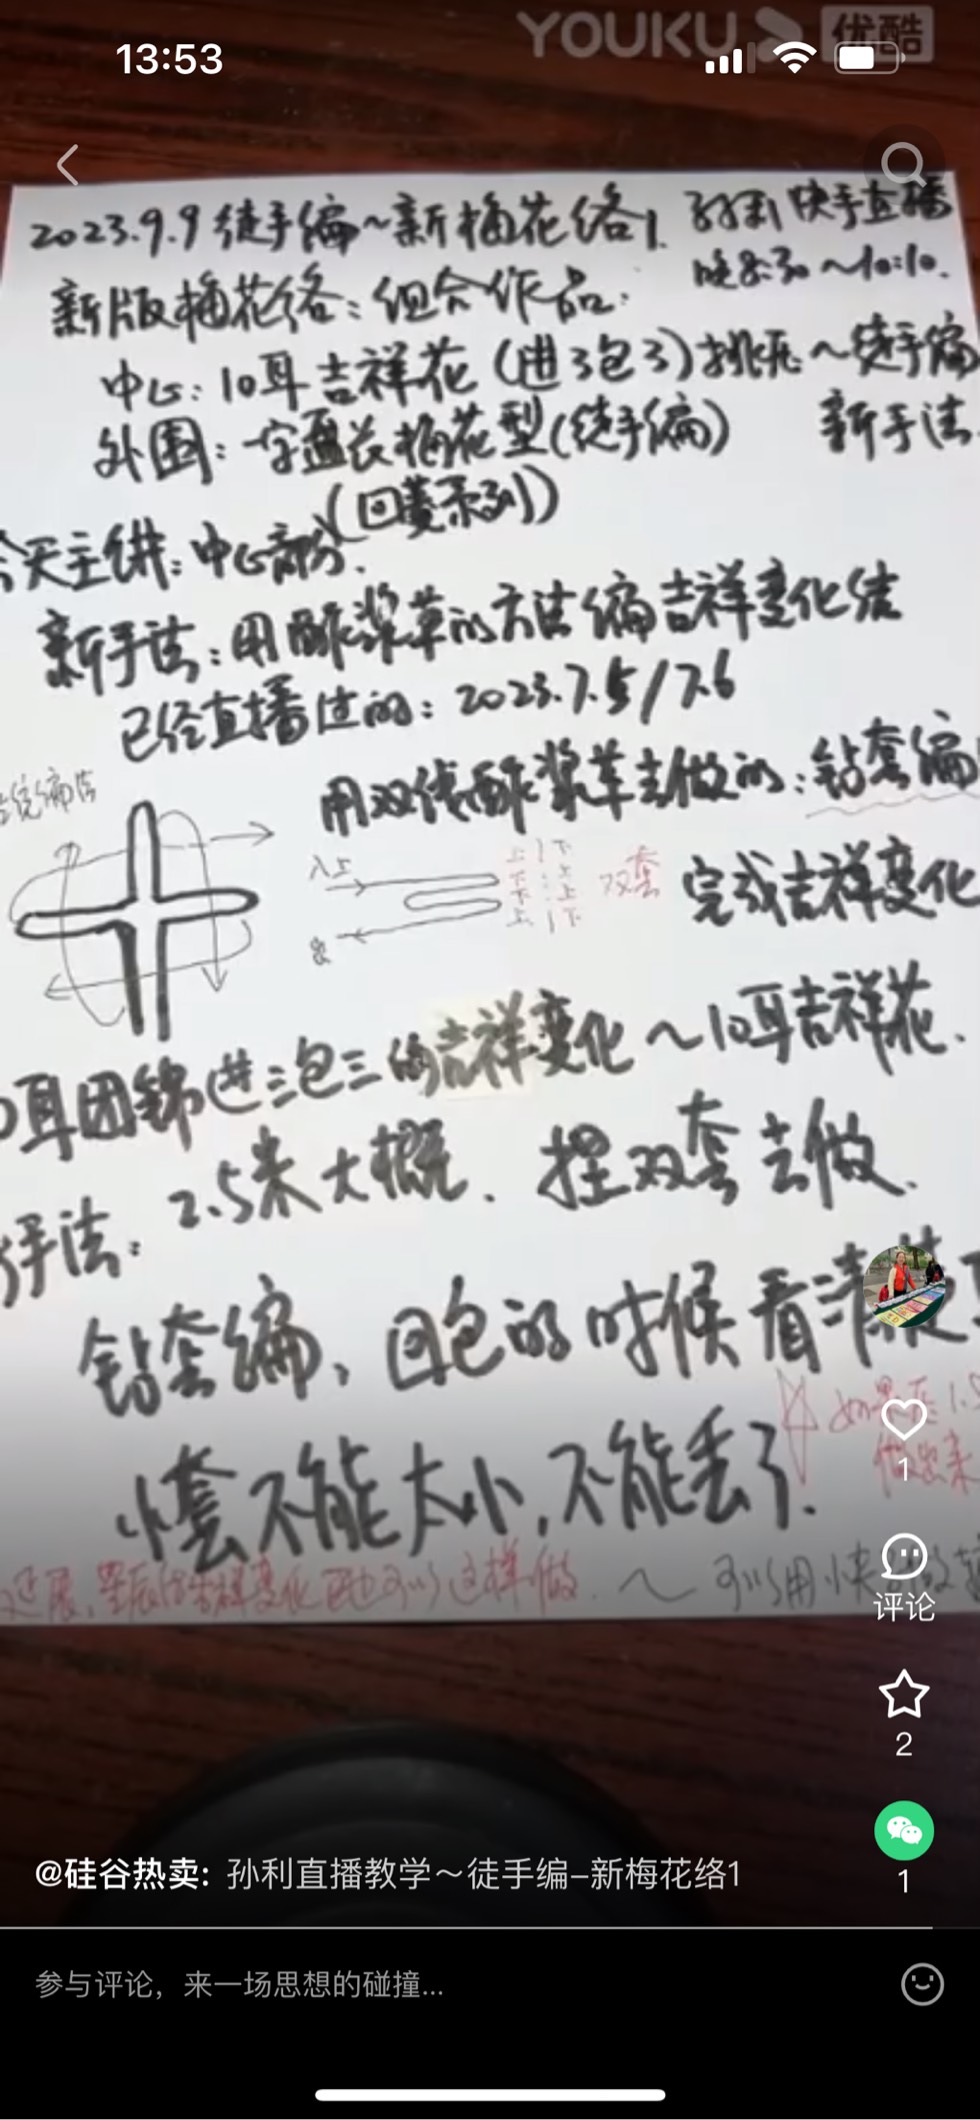 YOUKU 优酷
13:53
2023.9.9徒手编~新梅花络1. 孙利快手直播
晚8:30~10:10.
新版梅花络:组合作品.
中心:10耳吉祥花(进3包3)挑压~徒手编
外围:一字盘长梅花型(徒手编) 新手法
(回菱系列)
今天主讲:中心部分.
新手法:用酢浆草的方法编吉祥变化结
已经直播过的:2023.7.5/7.6
传统编法
用双线酢浆草去做的:钻套编
入上
上 下
下 上
下 上
上 下
双套
完成吉祥变化
出
耳团锦进三包三的吉祥变化~10耳吉祥花.
手法:2.5米大概.捏双套去做.
钻套编,回包的时候看清楚
小套不能太小,不能丢了.
如果
做出来
延展,星辰结吉祥变化 也可以这样做.~可以用快
1
评论
2
1
@硅谷热卖: 孙利直播教学~徒手编-新梅花络1
参与评论，来一场思想的碰撞...